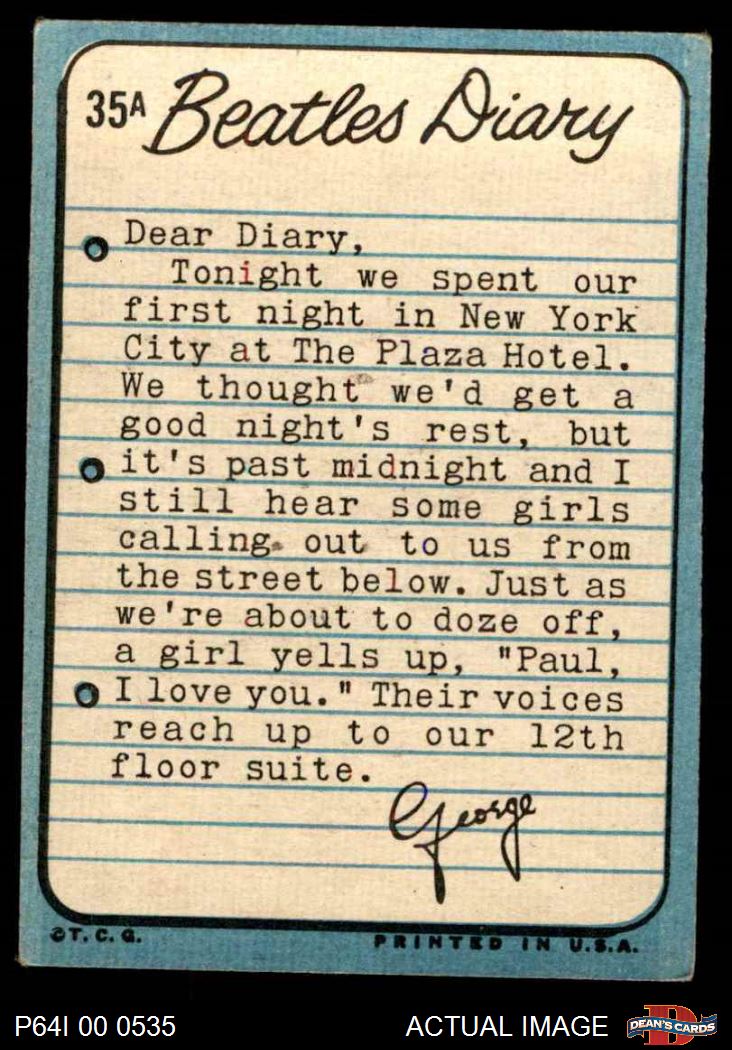 35A Beatles Diary
Dear Diary,
Tonight we spent our
first night in New York
City at The Plaza Hotel.
We thought we'd get a
good night's rest, but
it's past midnight and I
still hear some girls
calling out to us from
the street below. Just as
we're about to doze off,
a girl yells up, "Paul,
I love you." Their voices
reach up to our 12th
floor suite.
George
©T. C. G.
PRINTED IN U.S.A.
P64I 00 0535
ACTUAL IMAGE
D
DEAN'S CARDS